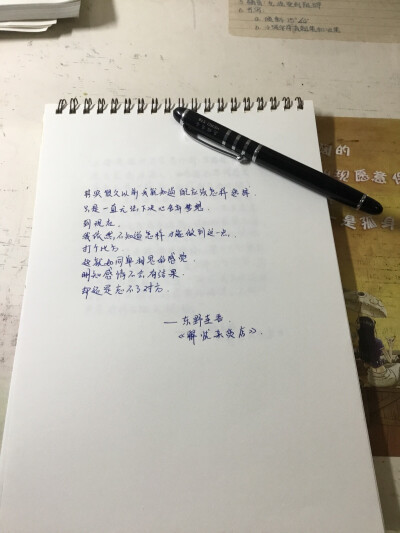 5.
6. 
a.
b.
的
现愿意
是孤身
其实很久以前我就知道自己应该怎样选择.
只是一直无法下决心舍弃梦想.
到现在.
我依然不知道怎样才能做到这一点.
打个比方.
这就如同单相思的感觉.
明知感情不会有结果.
却还是忘不了对方.
— 东野圭吾.
《解忧杂货店》.